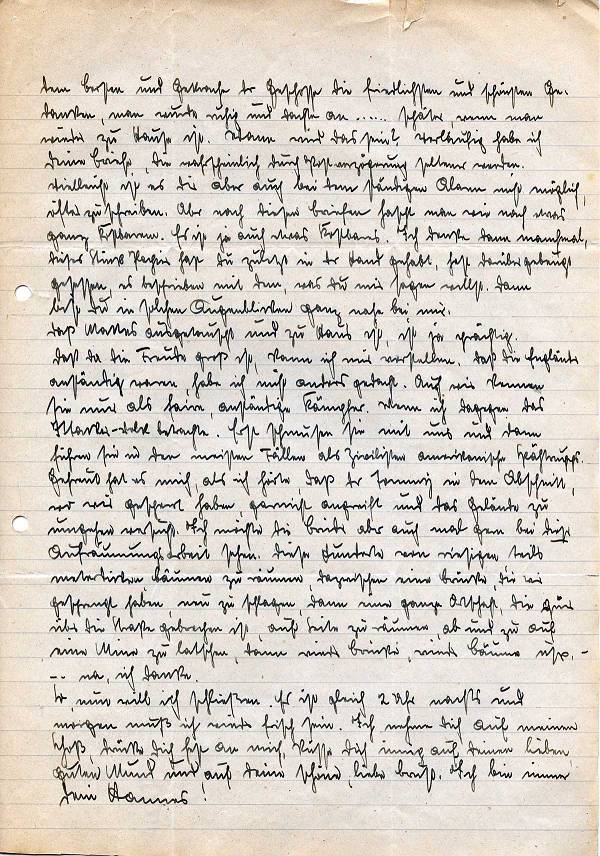 dem bersten und Gekrache der Geschosse die friedlichsten und schönsten Ge-
danken, man wurde ruhig und dachte an ...... später wenn man
wieder zu Hause ist. Wann wird das sein? Vorläufig habe ich
Deine Briefe, die wahrscheinlich durch Postverzögerung seltener werden.
Vielleicht ist es dir aber auch bei dem ständigen Alarm nicht möglich,
öfter zu schreiben. Aber nach diesen Briefen hascht man wie nach etwas
ganz Kostbarem. Es ist ja auch etwas Kostbares. Ich denke dann manchmal,
dieses Stück Papier hast du zuletzt in der Hand gehabt, hast darüber gebeugt
gesessen, es beschrieben mit dem, was du mir sagen willst. Dann
bist du in solchen Augenblicken ganz nahe bei mir.
Daß ausgetauscht und zu Haus ist, ist ja prächtig.
Daß da die Freude groß ist, kann ich mir vorstellen. Daß die Engländer
anständig waren, habe ich nicht anders gedacht. Auch wir kennen
sie nur als faire, anständige Kämpfer. Wenn ich dagegen das
betrachte. Erst schmusen sie mit uns und dann
führen sie in den meisten Fällen als Zivilisten amerikanische Spähtrupps.
Gefreut hat es mich, als ich hörte, daß der Tommy in dem Abschnitt,
wo wir gesperrt haben, garnicht angreift und das Gelände zu
umgehen versucht. Ich möchte die Brüder aber auch mal gern bei dieser
Aufräumungsarbeit sehen. Diese Hunderte von riesigen teils
meterdicken Bäumen zu räumen dazwischen eine Brücke, die wir
gesprengt haben, neu zu schlagen, dann eine ganze Ortschaft, die quer
über die Straße gebrochen ist, auf Seite zu räumen ab und zu auf
eine Mine zu latschen, dann wieder Brücke, wieder Bäume usw. -
-- na, ich danke.
So, nun will ich schließen. Es ist gleich 2 Uhr nachts und
morgen muß ich wieder frisch sein. Ich nehme dich auf meinen
Schoß, drücke dich fest an mich, küsse dich innig auf deinen lieben,
guten Mund und auf deine schöne, liebe Brust. Ich bin immer
Dein Hannes!